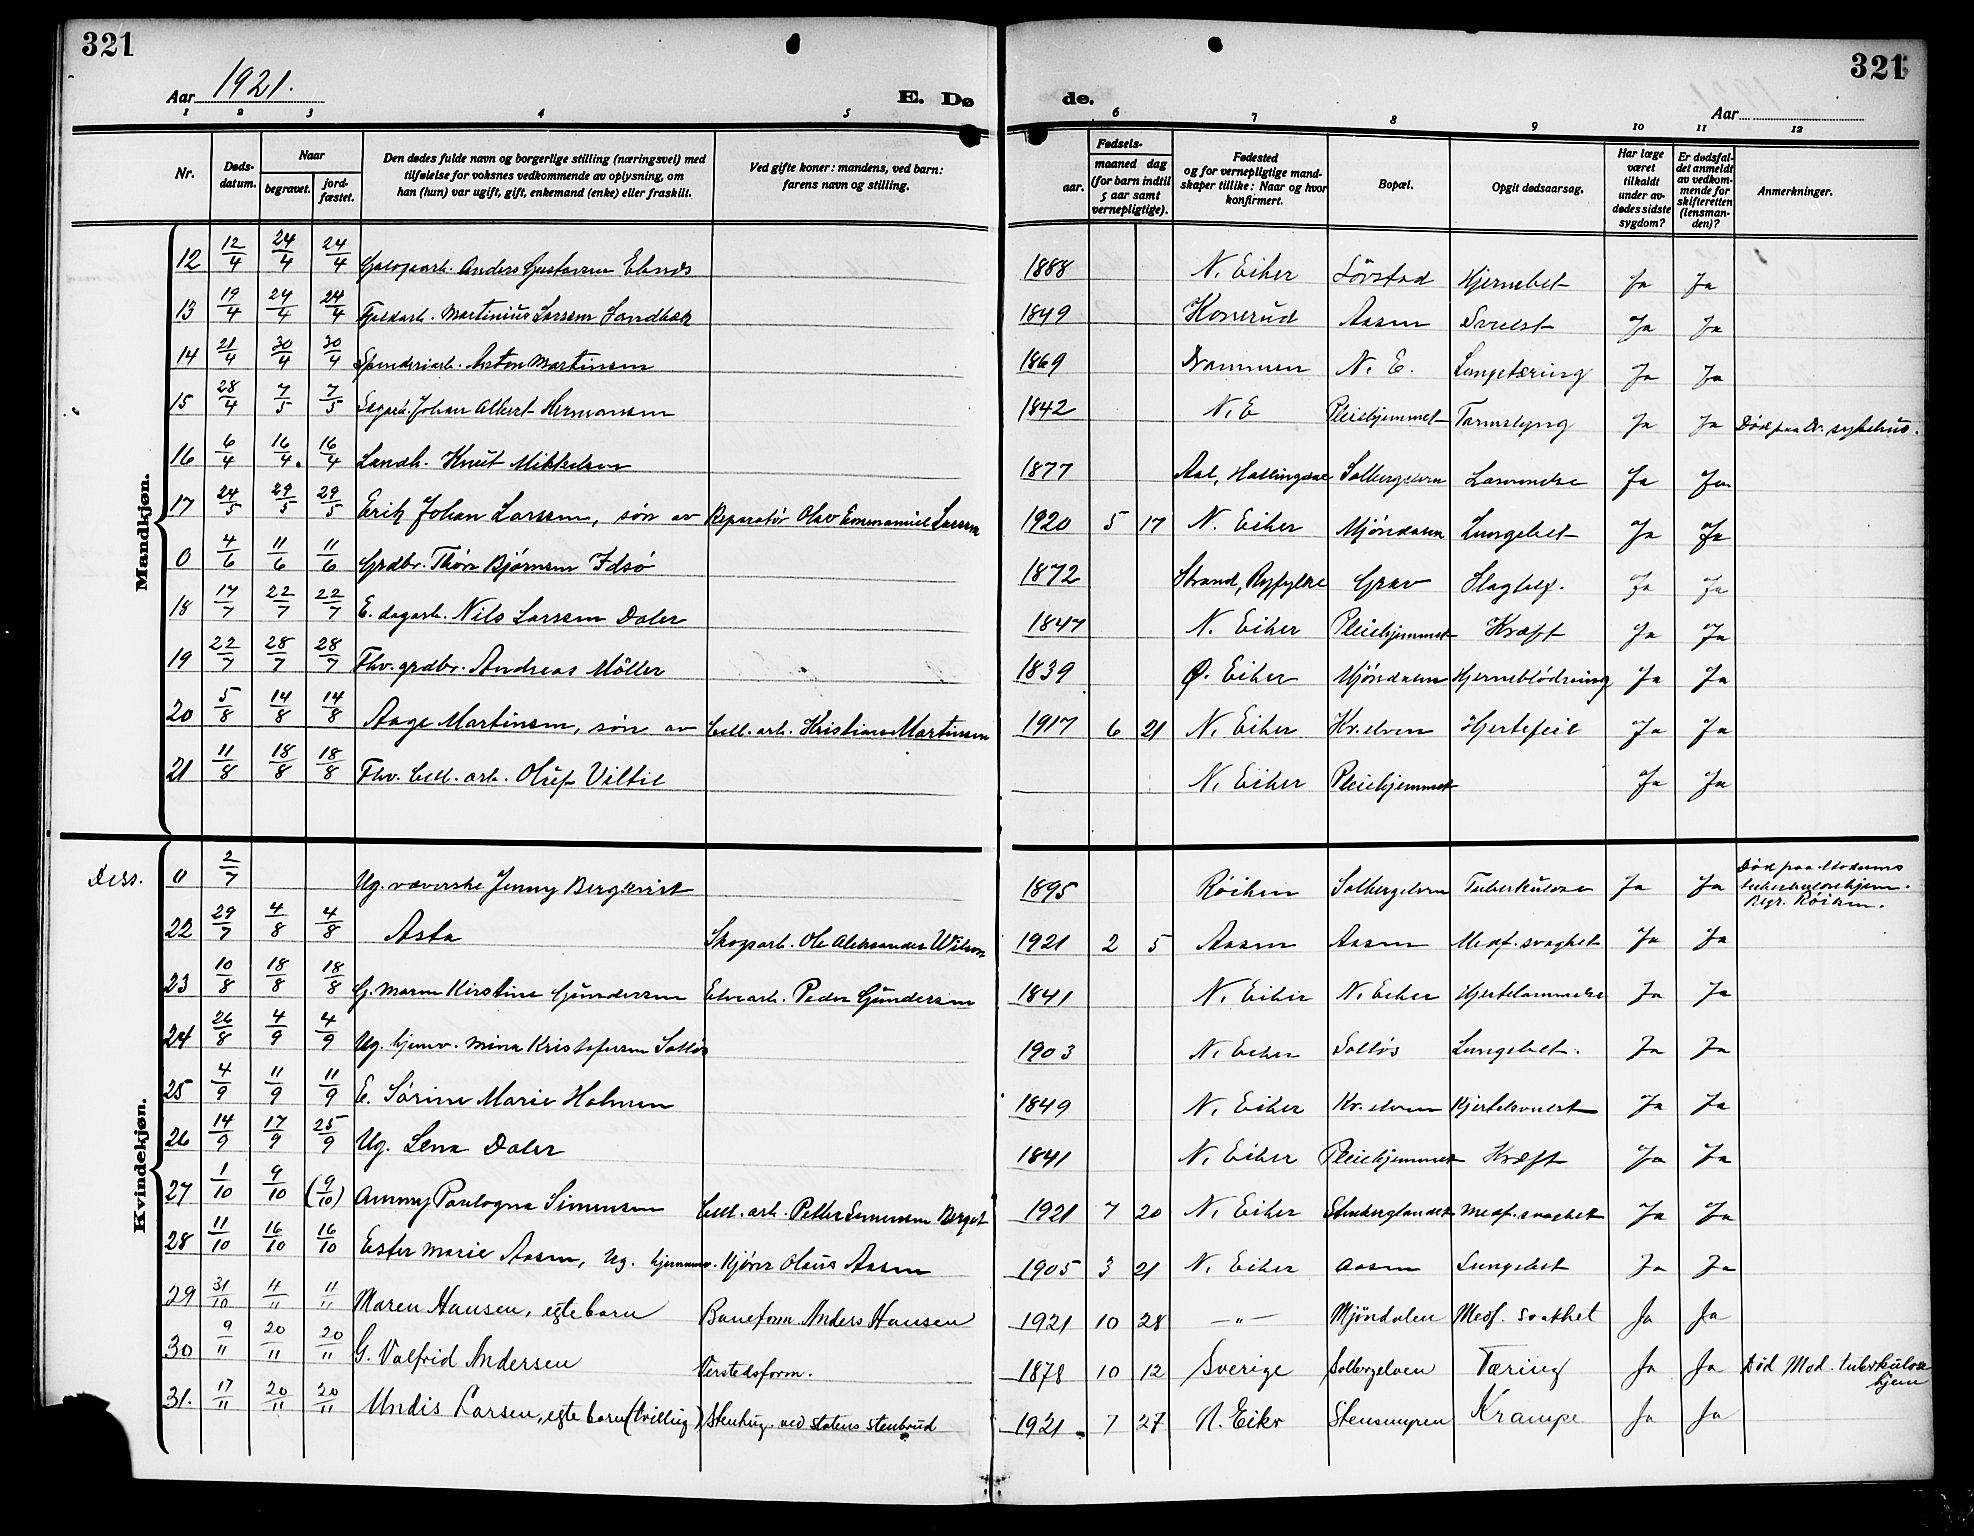 321
Aar 1921.
E. Dø
1 2 3 4 5
Nr. Døds-datum. Naar begravet. jord-fæstet. Den dødes fulde navn og borgerlige stilling (næringsvei) med tilføielse for voksnes vedkommende av oplysning, om han (hun) var ugift, gift, enkemand (enke) eller fraskilt. Ved gifte koner: mandens, ved barn: farens navn og stilling.
Mandkjøn.
12 12/4 24/4 24/4 Anders Gustavsen
13 19/4 24/4 24/4 Martinius Larsen Sandbæk
14 21/4 30/4 30/4 Spinderiarb. Anton Martinsen
15 28/4 7/5 7/5 Sagarb. Johan Albert Hermansen
16 6/4 16/4. 16/4 Landh. Knut Mikkelsen
17 24/5 29/5 29/5 Erik Johan Larsen, søn av Reparatør Olav Emmanuel Larsen
0 4/6 11/6 11/6 Grdbr. Thore Bjørnsen Idsö
18 17/7 22/7 22/7 E. dagarb. Nils Larsen Daler
19 22/7 28/7 28/7 Fhv. grdbr. Andreas Möller
20 5/8 14/8 14/8 Aage Martinsen, søn av Cell. arb. Kristian Martinsen
21 11/8 18/8 18/8 Fhv. Cell. arb. Oluf Viltil
Kvindekjøn.
Dess. 0 2/7 Ug. væverske Jenny Bergkvist
22 29/7 4/8 4/8 Asta Skogarb. Ole Aleksander Wilson
23 10/8 18/8 18/8 G. Maren Kirstine Gundersen Elvearb. Peder Gundersen
24 26/8 4/9 4/9 Ug. hjemv. Mina Kristofersen
25 4/9 11/9 11/9 E. Sørine Marie Holmen
26 14/9 17/9 25/9 Ug. Lena Daler
27 1/10 9/10 (9/10) Ammy Simensen Cell. arb. Petter Simensen Berget
28 11/10 16/10 16/10 Ester Marie Aasen, ug. hjemmev. Kjører Olaus Aasen
29 31/10 11/11 11/11 Maren Hansen, egte barn Baneform. Anders Hansen
30 9/11 20/11 20/11 G. Valfrid Andersen Verstedsform.
31. 17/11 20/11 20/11 Undis Larsen, egte barn (tvilling) Stenhug. ved statens stenbrud
321
de.
Aar
6 7 8 9 10 11 12
Fødsels-
aar. maaned dag (for barn indtil 5 aar samt vernepligtige). Fødested og for vernepligtige mandskaper tillike: Naar og hvor konfirmert. Bopæl. Opgit dødsaarsag. Har læge været tilkaldt under avdødes sidste sygdom? Er dødsfaldet anmeldt av vedkommende for skifteretten (lensmanden)? Anmerkninger.
1888 N. Eiker Lövstad Hjernebet Ja Ja
1849 Konerud Aasen Svulst Ja Ja
1869 Drammen N. E. Lungetæring Ja Ja
1842 N. E Pleiehjemmet Tarmslyng Ja Ja Död paa Dr. sykehus.
1877 Aal, Hallingdal Solbergelven Lammelse Ja Ja
1920 5 17 N. Eiker Mjöndalen Lungebet Ja Ja
1872 Strand, Ryfylke Grav Slagtilf. Ja Ja
1847 N. Eiker Pleiehjemmet Kræft Ja Ja
1839 Ø. Eiker Mjöndalen Hjerneblödning Ja Ja
1917 6 21 N. Eiker Kr.elven Hjertefeil Ja Ja
N. Eiker Pleiehjemmet Ja Ja
1895 Röiken Solbergelven Tuberkulose Ja Ja Död paa Modums tuberkulosehjem. Begr. Röiken.
1921 2 5 Aasen Aasen Medf. svaghet Ja Ja
1841 N. Eiker N. Eiker Hjertelammelse Ja Ja
1903 N. Eiker Lungebet. Ja Ja
1849 N. Eiker Kr.elven Kjertelsvulst Ja Ja
1841 N. Eiker Pleiehjemmet Kræft Ja Ja
1921 7 20 N. Eiker Stenberglandet Medf. svaghet Ja Ja
1905 3 21 N. Eiker Aasen Lungebet Ja Ja
1921 10 28 —"— Mjöndalen Medf. svakhet Ja Ja
1878 10 12 Sverige Solbergelven Tæring Ja Ja Död Mod. tuberkulose hjem
1921. 7 27 N. Eiker Krampe Ja Ja